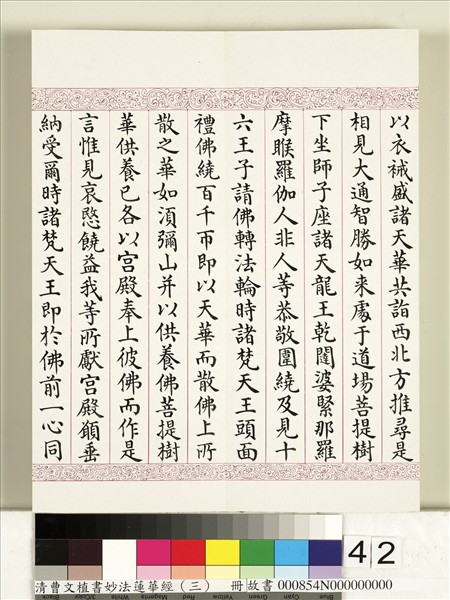 以衣裓盛諸天華共詣西北方推尋是
相見大通智勝如来處于道場菩提樹
下坐師子座諸天龍王乾闥婆緊那羅
摩睺羅伽人非人等恭敬圍繞及見十
六王子請佛轉法輪時諸梵天王頭面
禮佛繞百千帀即以天華而散佛上所
散之華如湏彌山并以供養佛菩提樹
華供養已各以宮殿奉上彼佛而作是
言惟見哀愍饒益我等所獻宮殿願垂
納受爾時諸梵天王即於佛前一心同
42
清曹文植書妙法蓮華經（三） 冊 故書 000854N000000000
Black
3/Color
White
Magenta
Red
Yellow
Green
Cyan
Blue